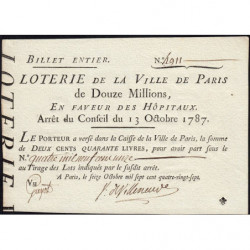 LOTERIE
BILLET ENTIER. N.º 4911
LOTERIE DE LA VILLE DE PARIS
de Douze Millions,
EN FAVEUR DES HÔPITAUX.
Arrêt du Conseil du 13 Octobre 1787.
LE PORTEUR a versé dans la Caisse de la Ville de Paris, la somme
de DEUX CENTS QUARANTE LIVRES, pour avoir part sous le
N.º quatre mil neuf cent onze
au Tirage des Lots indiqués par le susdit arrêt.
A Paris, le seize Octobre mil sept cent quatre-vingt-sept.
Vu